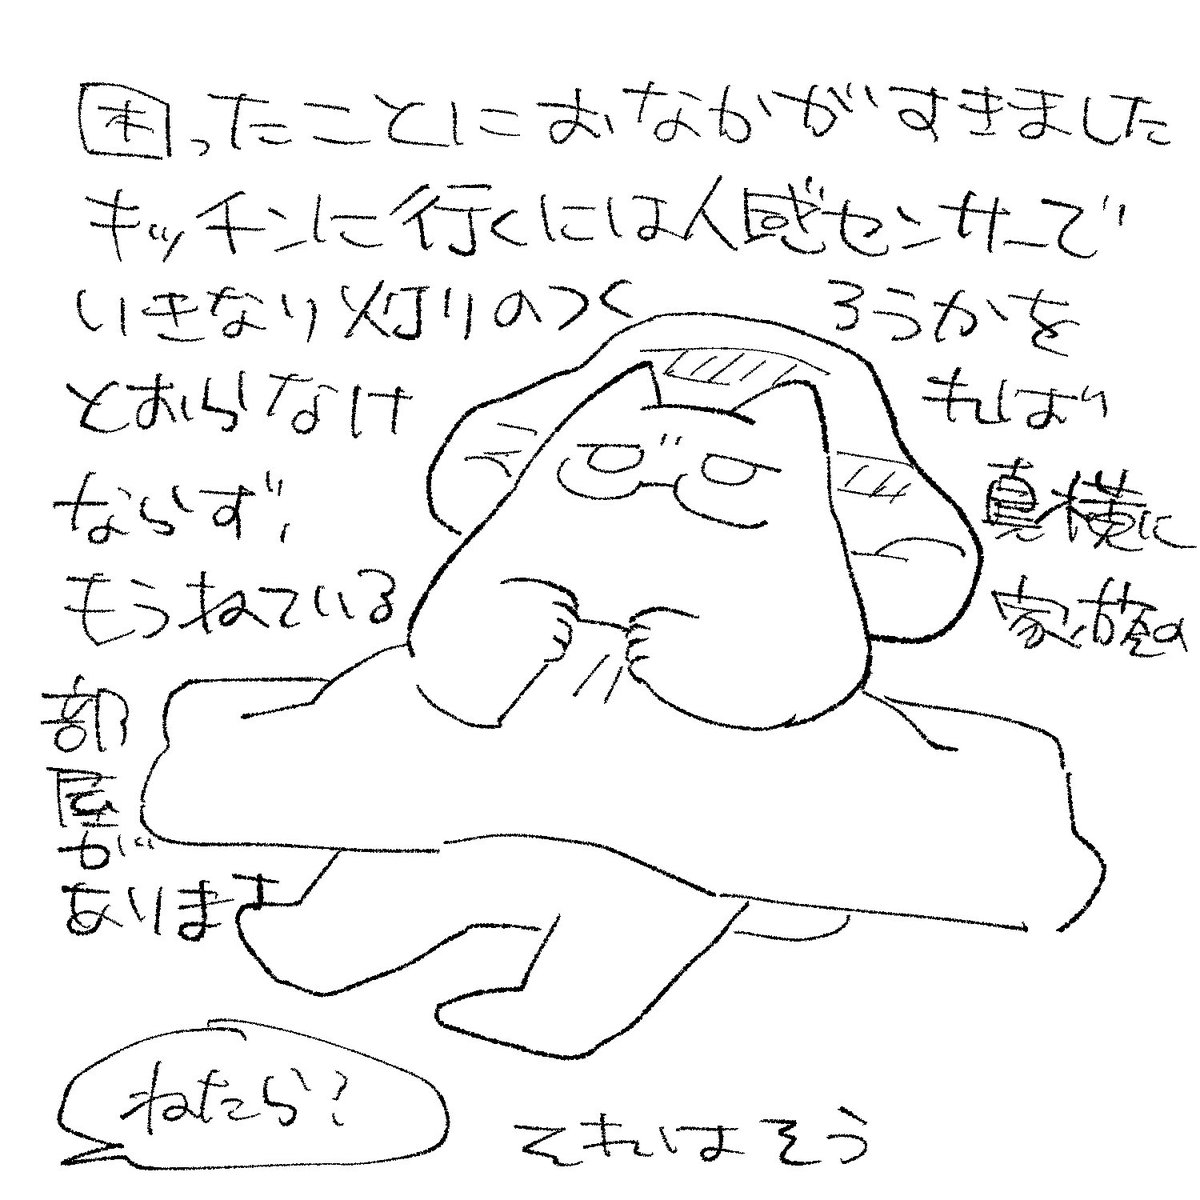 困ったことにおなかがすきました
キッチンに行くには人感センサーで
いきなり灯りのつくろうかを
とおらなければ
ならず、真横に
もうねている家族の
部屋があります
ねたら?
それはそう